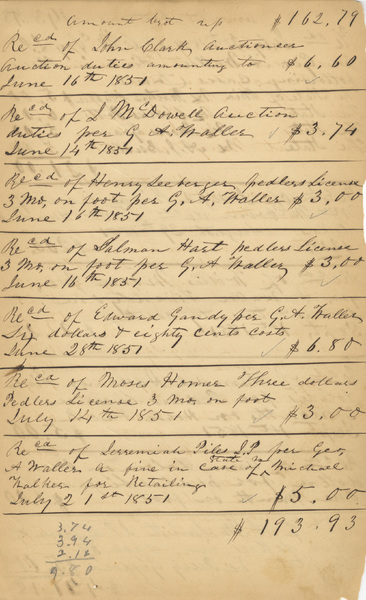 Amount brot up $162.79
Recd of John Clark Auctioneer
Auction duties amounting to $6.60
June 16th 1851
Recd of J McDowell Auction
duties per G A Waller $3.74
June 14th 1851
Recd of Henry Seeberger Pedlers License
3 Mo, on foot per G. A Waller $3,00
June 16th 1851
Recd of Hart Pedlers License
3 Mo, on foot per G. A Waller $3,00
June 16th 1851
Recd of Edward Gandy per G. A. Waller
Six dollars & eighty cents Costs
June 28th 1851 $6.80
Recd of Moses Homer Three dollars
Pedlers License 3 mo, on foot
July 14th 1851 $3.00
Recd of Jeremiah Piles J.P per Geo
A Waller a fine in case of State vs Michael
Walker for Retailing
July 21st 1851 $5.00
$193.93
3.74
3.94
2.12
9.80